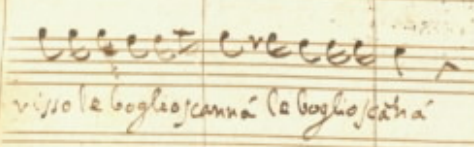 visso le boglio scanná le boglio scañá